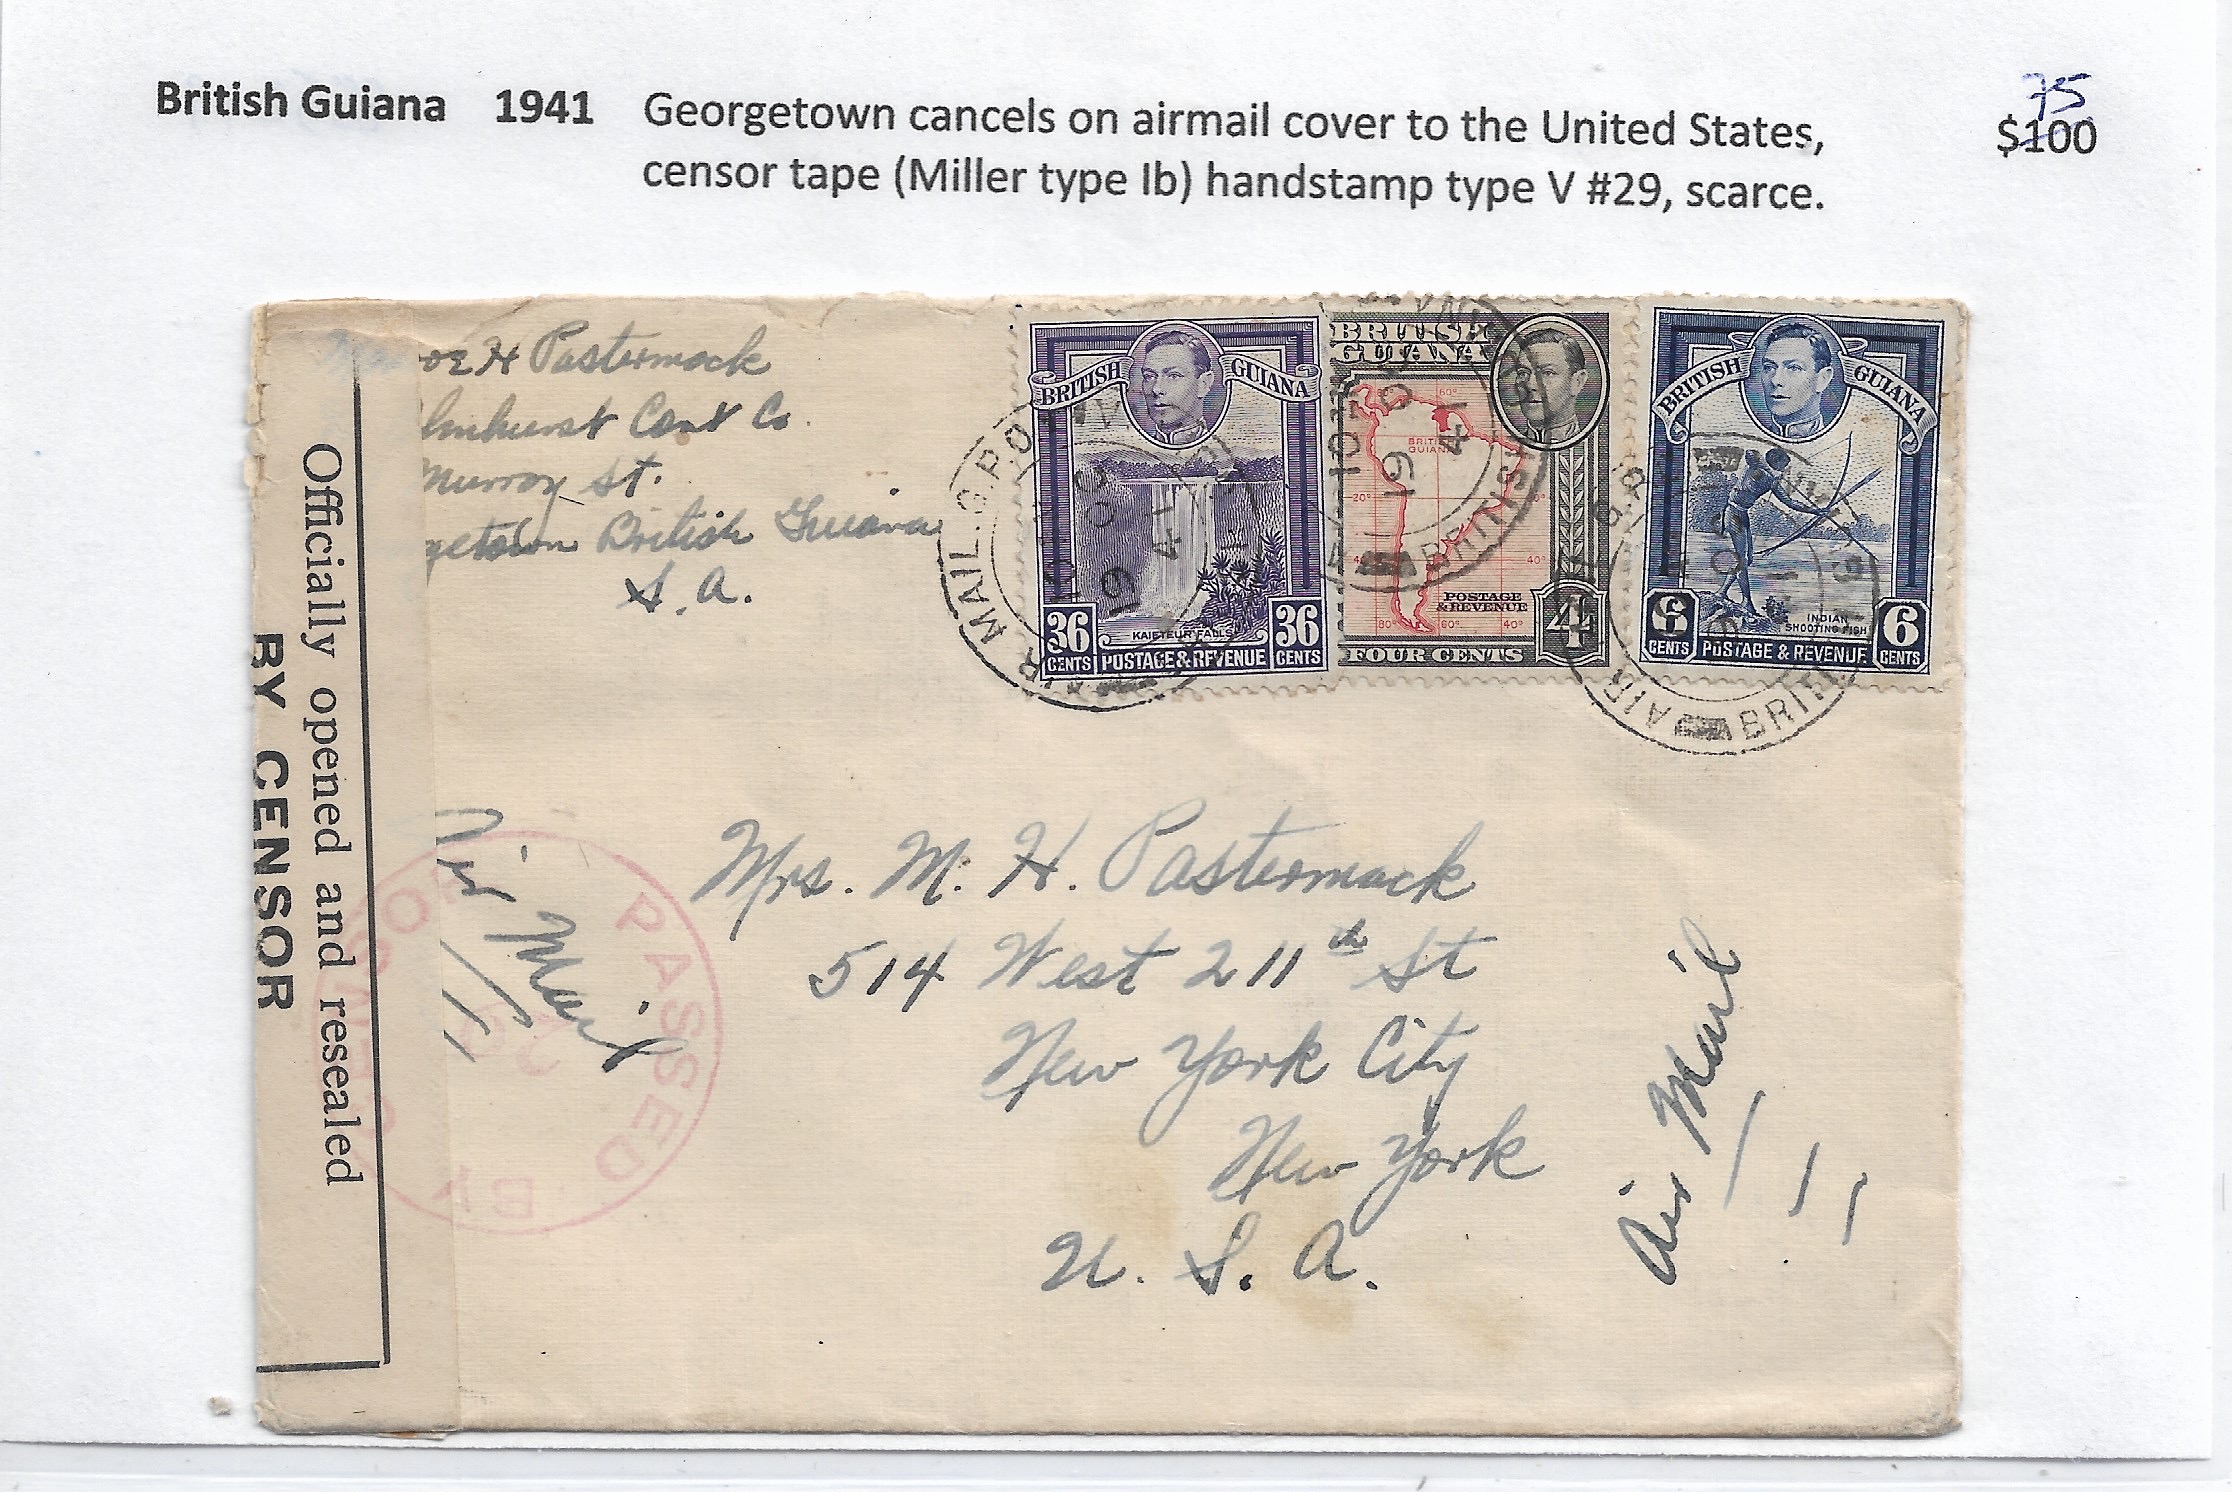 British Guiana 1941 Georgetown cancels on airmail cover to the United States,
censor tape (Miller type Ib) handstamp type V #29, scarce.
75
$100
H Pasternack
Cont Co.
Murray St.
getown British Guiana
S. A.
Officially opened and resealed
BY CENSOR
BRITISH GUIANA
KAIETEUR FALLS
36 CENTS POSTAGE & REVENUE 36 CENTS
BRITISH
GUIANA
60°
BRITISH
GUIANA
20°
40°
POSTAGE
& REVENUE
80° 60° 40°
FOUR CENTS 4
BRITISH GUIANA
INDIAN
SHOOTING FISH
6 CENTS POSTAGE & REVENUE 6 CENTS
AIR MAIL G.P.O.
19 41
BRITISH
19 41
AIR
Air Mail
PASSED BY CENSOR
Mrs. M. H. Pasternack
514 West 211th St
New York City
New York
U. S. A.
Air Mail